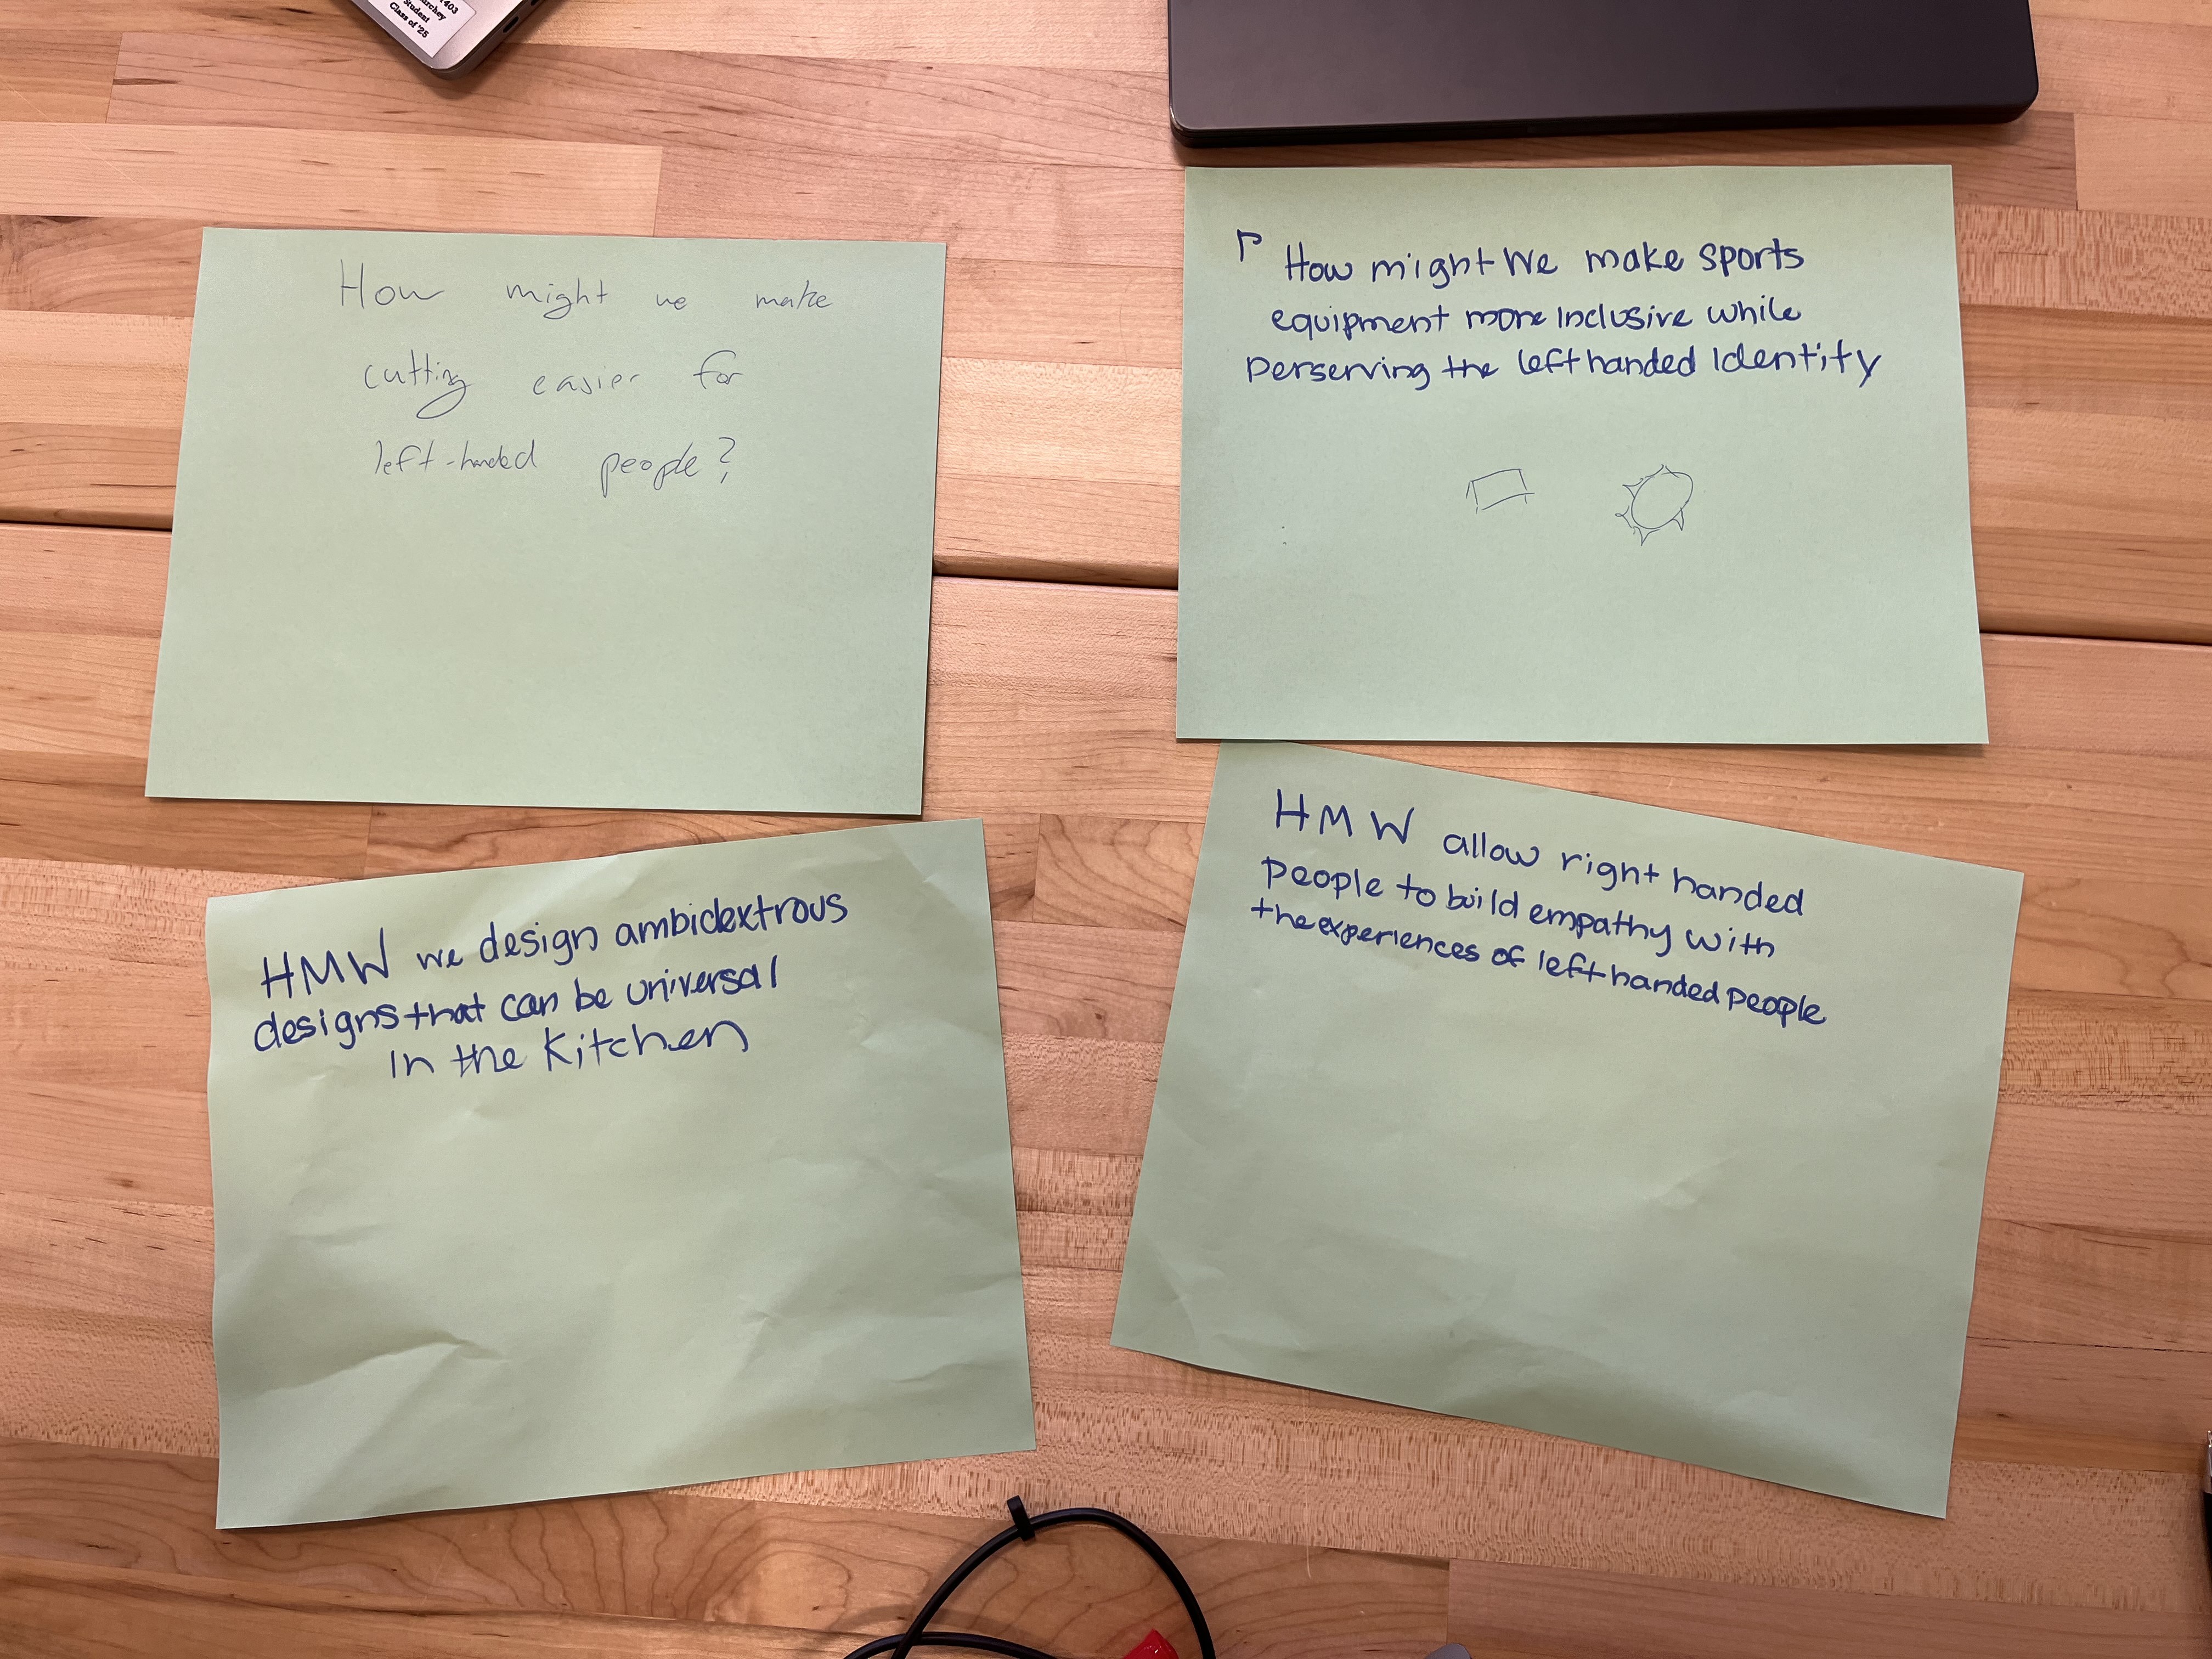 403
Student
Class of '25
How might we make
cutting easier for
left-handed people?
How might We make sports
equipment more inclusive while
perserving the left handed Identity
HMW we design ambidextrous
designs that can be universal
In the Kitchen
HMW allow right handed
people to build empathy with
the experiences of left handed people